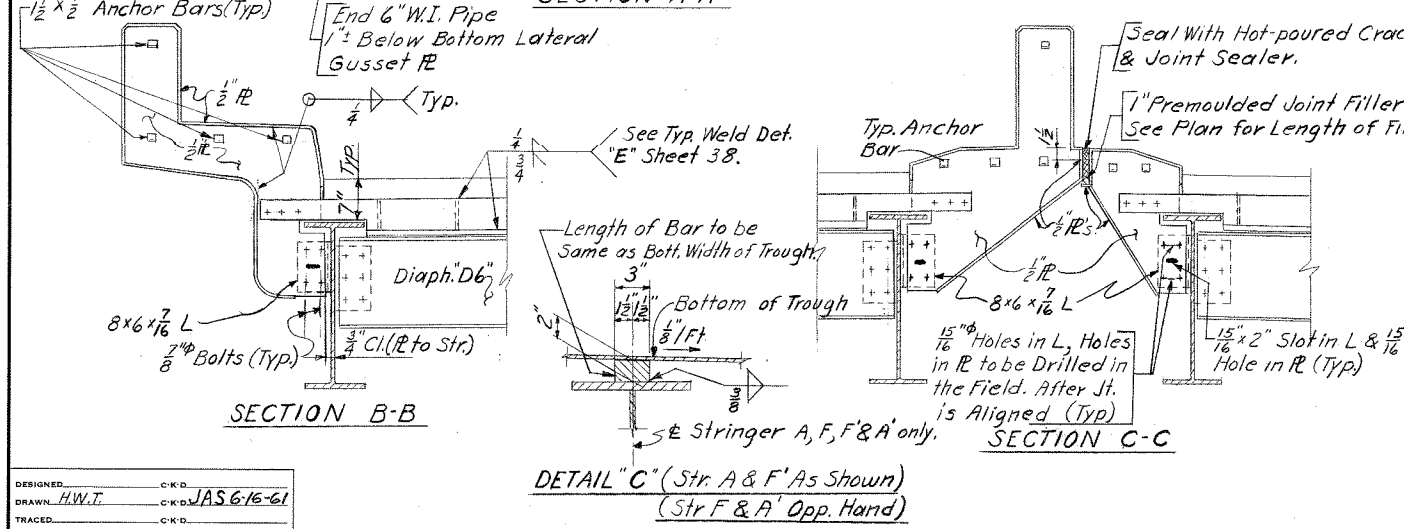 1½ x ½ Anchor Bars (Typ.)
End 6" W.I. Pipe
1"± Below Bottom Lateral
Gusset ₧
½" ₧
½" ₧
¼
Typ.
7" Typ.
¼
¾
See Typ. Weld Det.
"E" Sheet 38.
Diaph. "D6"
8x6x7/16 L
⅞"φ Bolts (Typ.)
¾" Cl. (₧ to Str.)
SECTION B-B
Length of Bar to be
Same as Bott. Width of Trough.
3"
1½" 1½"
2"
Bottom of Trough
⅛"/Ft.
℄ Stringer A, F, F' & A' only.
DETAIL "C" (Str. A & F' As Shown)
(Str F & A' Opp. Hand)
Seal With Hot-poured
& Joint Sealer.
1" Premoulded Joint Filler
See Plan for Length of
Typ. Anchor
Bar
1½"
½" ₧'s
½" ₧
8x6x7/16 L
15/16"φ Holes in L, Holes
in ₧ to be Drilled in
the Field. After Jt.
is Aligned (Typ)
15/16" x 2" Slot in L & 15/16
Hole in ₧ (Typ.)
SECTION C-C
DESIGNED C'K'D
DRAWN H.W.T. C'K'D JAS 6-16-61
TRACED C'K'D